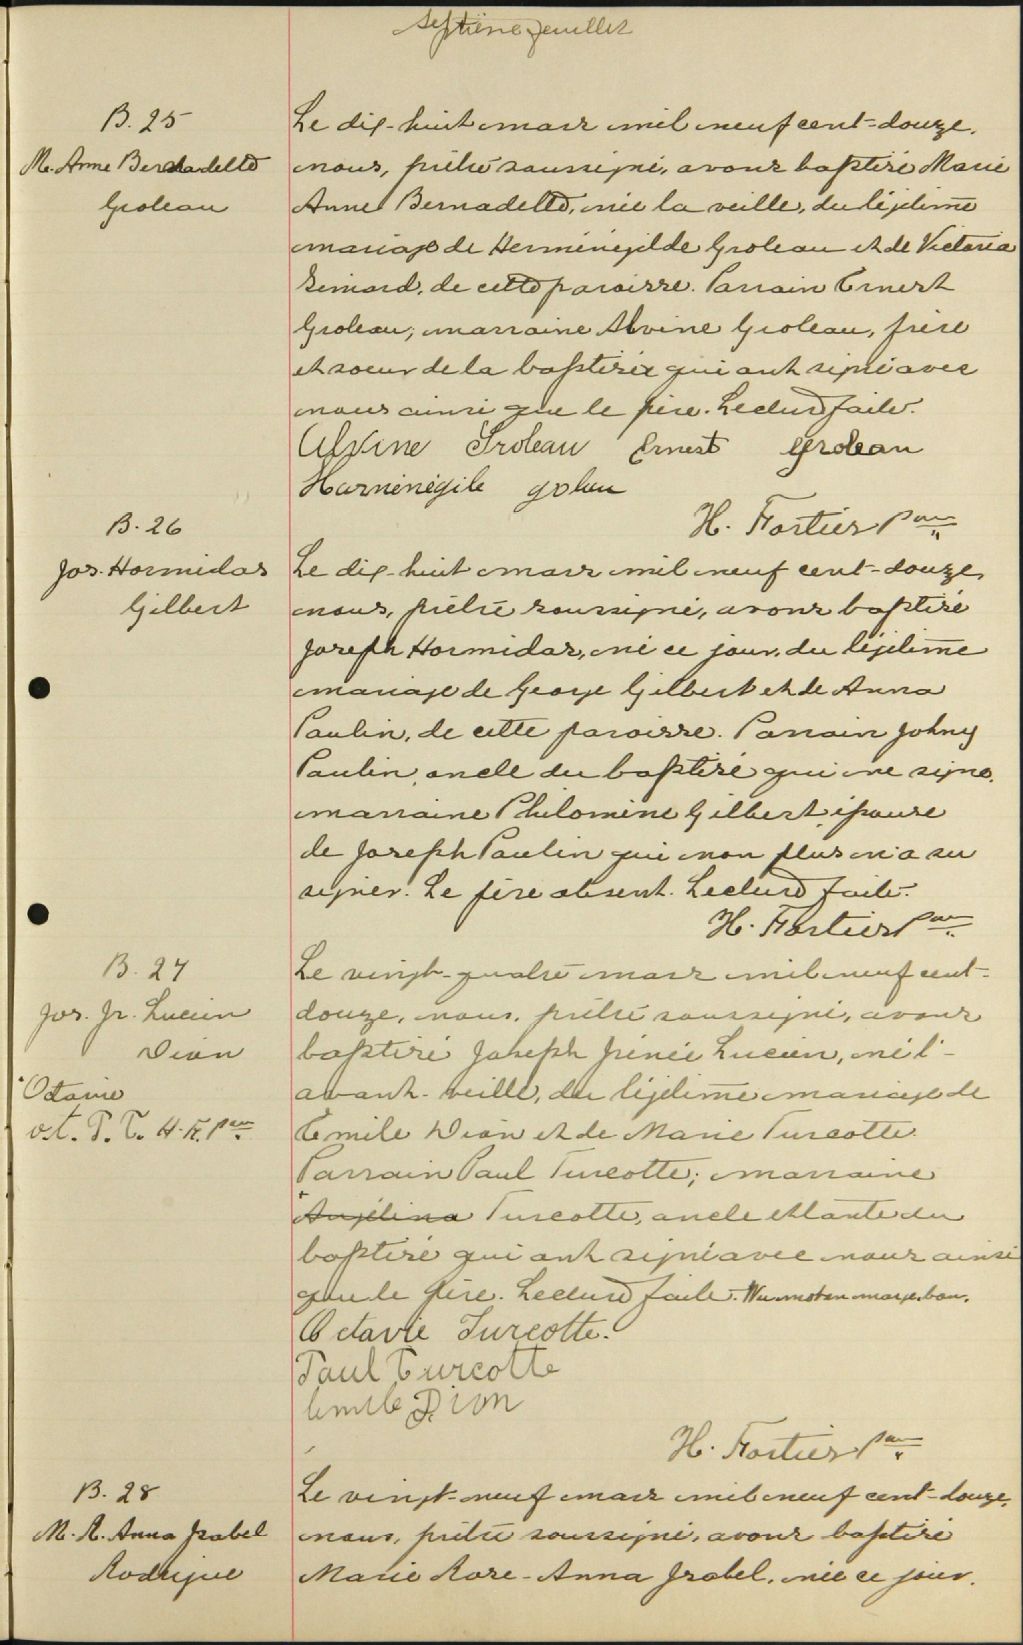 Septième feuillet
B. 25
M. Anne Bernadette
Groleau
Le dix-huit mars mil neuf cent-douze,
nous, prêtre soussigné, avons baptisé Marie
Anne Bernadette, née la veille, du légitime
mariage de Herménégilde Groleau et de Victoria
Simard, de cette paroisse. Parrain Ernest
Groleau; marraine Alvine Groleau, frère
et soeur de la baptisée qui ont signé avec
nous ainsi que le père. Lecture faite.
Alvine Groleau Ernest Groleau
Harnénégile golau
H. Fortier Ptre
B. 26
Jos. Hormidas
Gilbert
Le dix-huit mars mil neuf cent-douze,
nous, prêtre soussigné, avons baptisé
Joseph Hormidas, né ce jour, du légitime
mariage de George Gilbert et de Anna
Paulin, de cette paroisse. Parrain Johny
Paulin, oncle du baptisé qui ne signe,
marraine Philomène Gilbert, épouse
de Joseph Paulin qui non plus n'a su
signer. Le père absent. Lecture faite.
H. Fortier Ptre
B. 27
Jos. Ir. Lucien
Dion
+Octavie
o.t. P.T. H.F. ptre
Le vingt-quatre mars mil neuf cent-
douze, nous, prêtre soussigné, avons
baptisé Joseph Irénée Lucien, né l'-
avant-veille, du légitime mariage de
Emile Dion et de Marie Turcotte.
Parrain Paul Turcotte; marraine
+Angélina Turcotte, oncle et tante du
baptisé qui ont signé avec nous ainsi
que le père. Lecture faite. Un mot en marge bon.
Octavie Turcotte.
Paul Turcotte
Emile Dion
H. Fortier Ptre
B. 28
M. R. Anna Isabel
Rodrigue
Le vingt-neuf mars mil neuf cent-douze,
nous, prêtre soussigné, avons baptisé
Marie Rose-Anna Isabel, née ce jour,